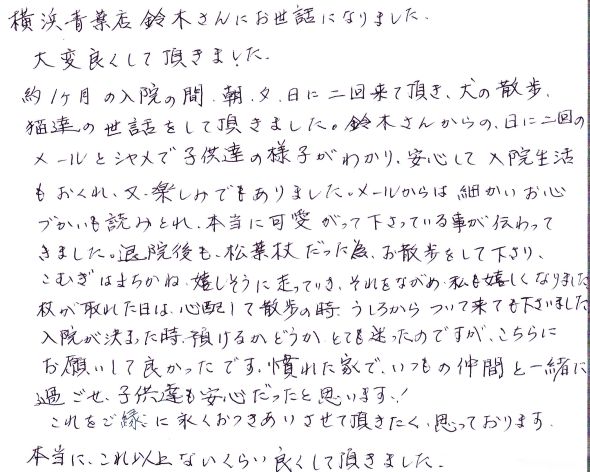 横浜青葉店 鈴木さんにお世話になりました.
大変良くして頂きました.
約1ヶ月の入院の間、朝、夕、日に二回来て頂き、犬の散歩、
猫達の世話をして頂きました。鈴木さんからの、日に二回の
メールとシャメで子供達の様子がわかり、安心して入院生活
もおくれ、又、楽しみでもありました。メールからは細かいお心
づかいも読みとれ、本当に可愛がって下さっている事が伝わって
きました。退院後も、松葉杖だった為、お散歩をして下さり、
こむぎはまちかね、嬉しそうに走っていき、それをながめ、私も嬉しくなりました
杖が取れた日は、心配して散歩の時、うしろからついて来ても下さいました
入院が決まった時、預けるかどうかとても迷ったのですが、こちらに
お願いして良かったです、慣れた家で、いつもの仲間と一緒に
過ごせ、子供達も安心だったと思います!
これをご縁に永くおつきあいさせて頂きたく、思っております.
本当に、これ以上ないくらい良くして頂きました.